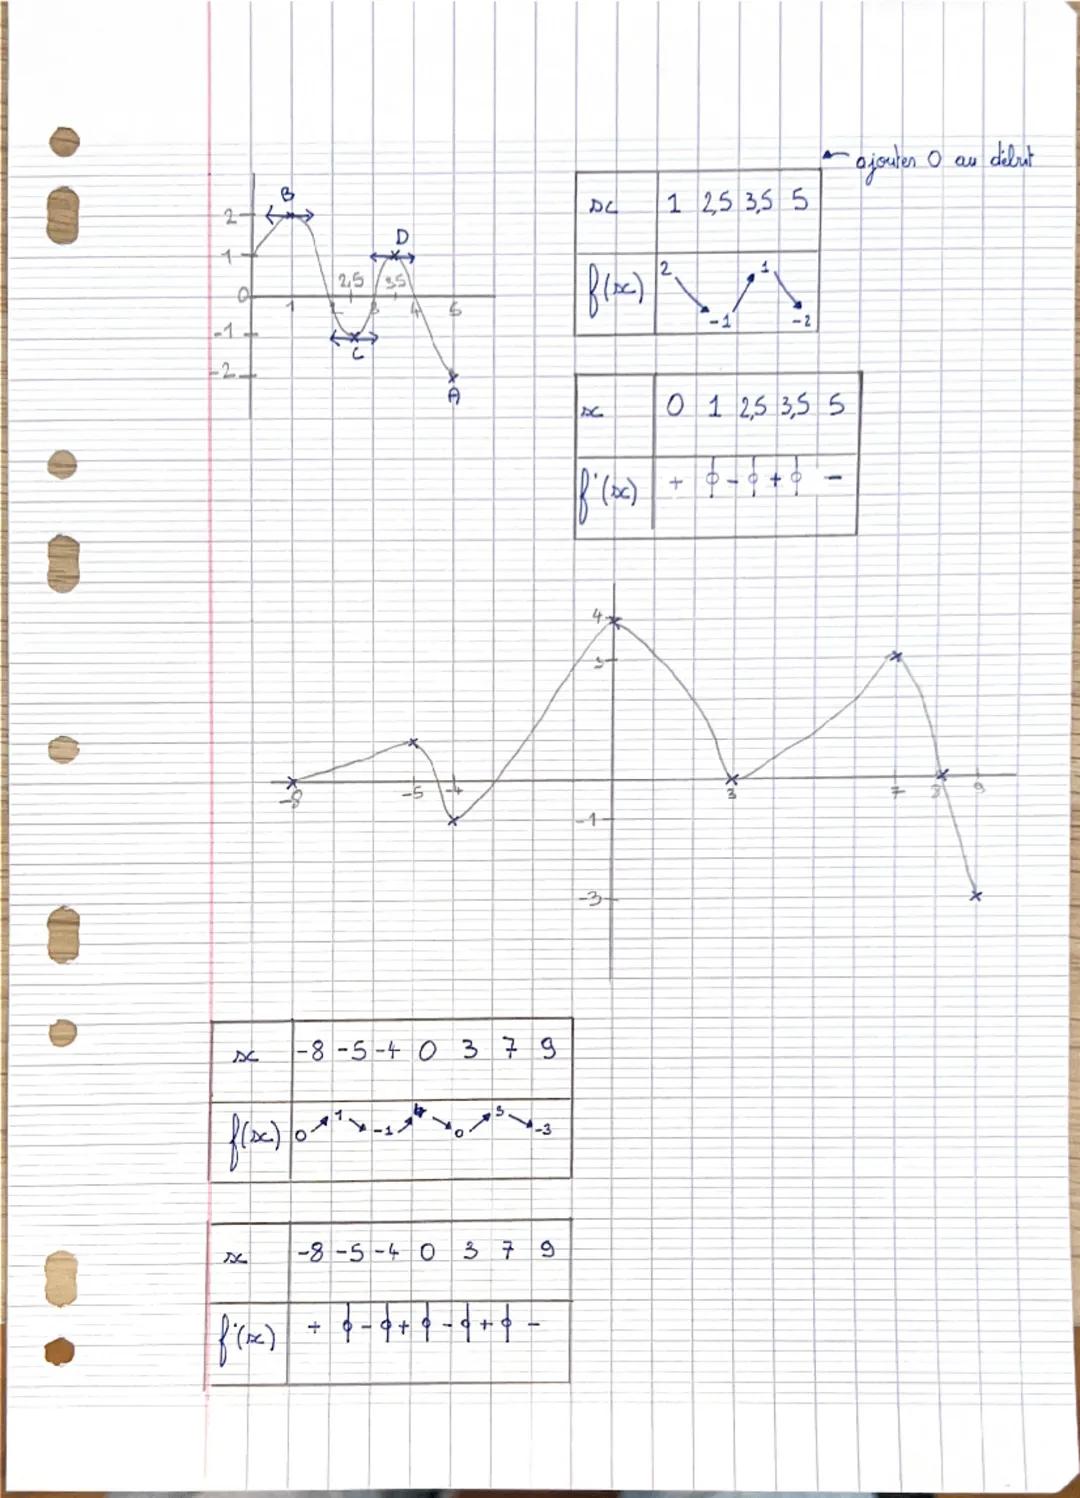 ajouter 0 au début
B
2
D
1
2,5 3,5
0
1 2 3 4 5
-1
C
-2
A
x 1 2,5 3,5 5
f(x) 2 -1 1 -2
x 0 1 2,5 3,5 5
f'(x) + 0 - 0 + 0 -
4
3
-8 -5 -4 3 7 8 9
-1
-3
x -8 -5 -4 0 3 7 9
f(x) 0 1 -1 4 0 3 -3
x -8 -5 -4 0 3 7 9
f'(x) + 0 - 0 + 0 - 0 + 0 -